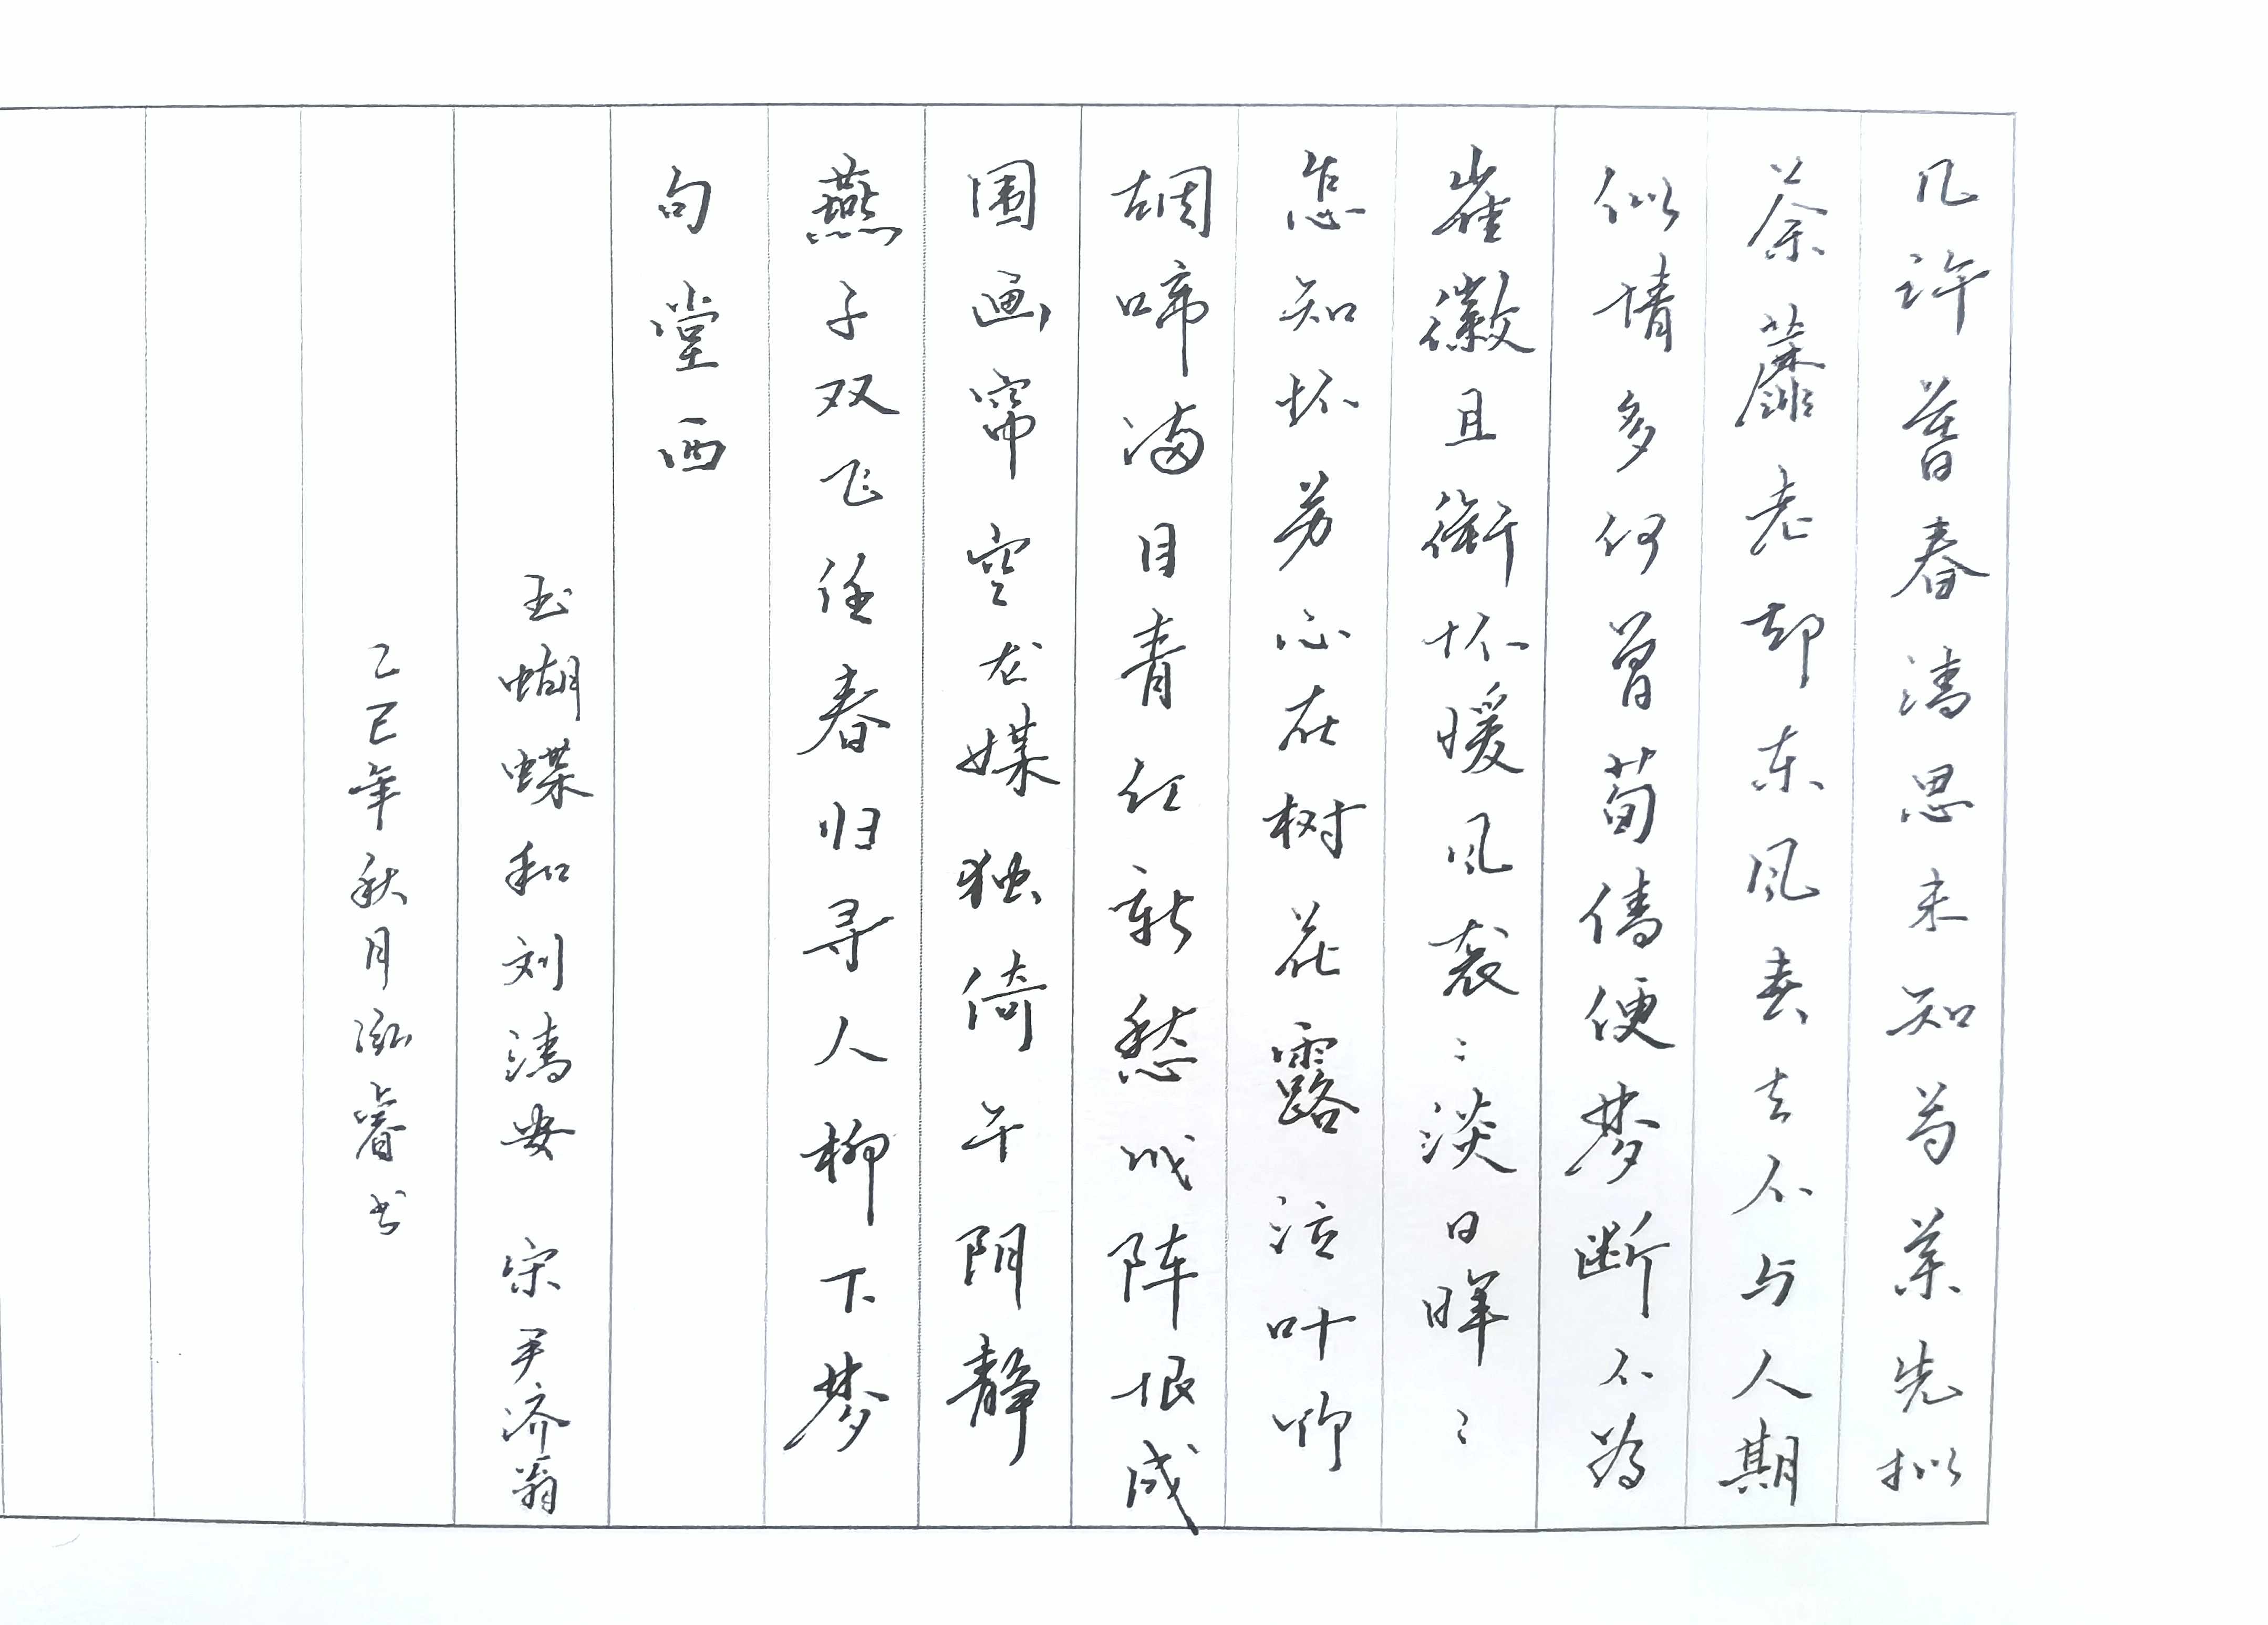 几许暮春清思未知芍药先拟
荼蘼老却东风春去不与人期
似情多何曾荀倩便梦断不为
崔徽且衔杯暖风衮〻淡日晖〻
怎知坏芳心在树花露泣叶
蜩啼满目青红新愁成阵恨成
围画帘空龙媒独倚午阴静
燕子双飞任春归寻人柳下梦
句堂西
玉蝴蝶和刘清安 宋尹济翁
乙巳年秋月泓睿书